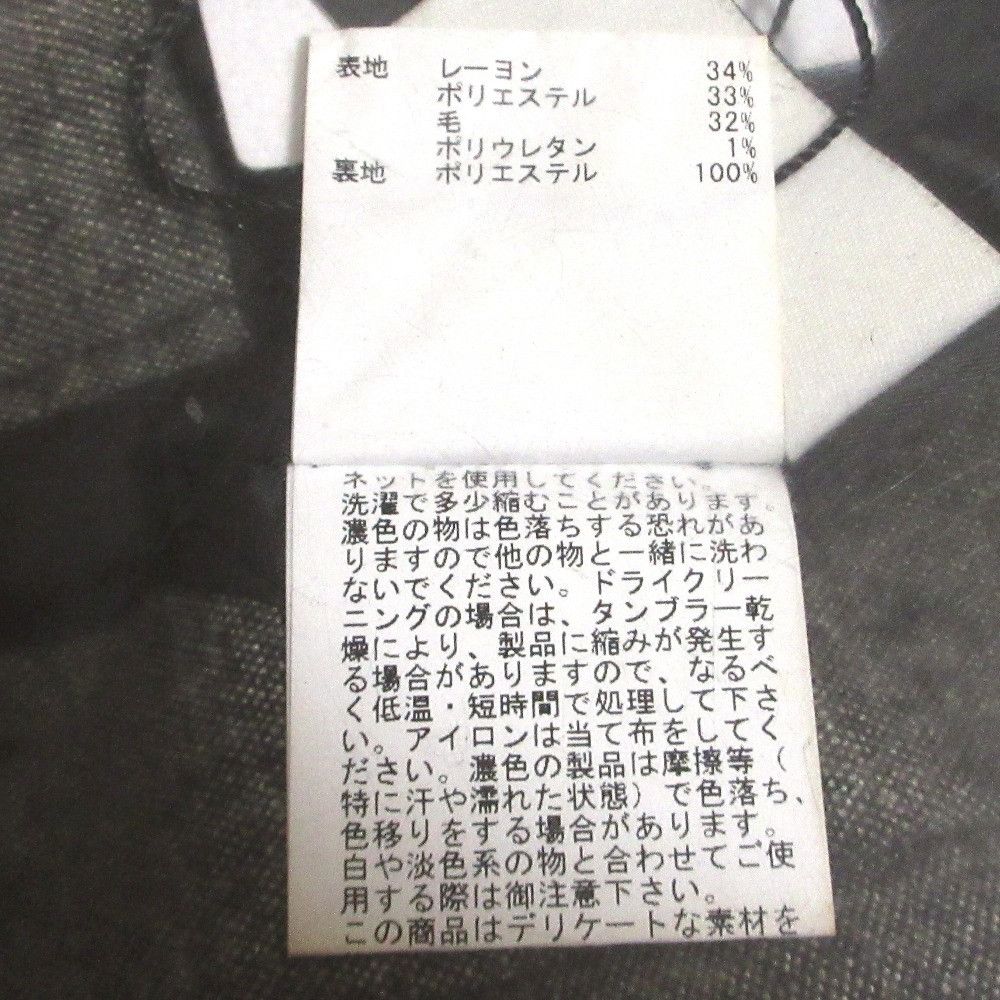 表地 レーヨン 34%
ポリエステル 33%
毛 32%
ポリウレタン 1%
裏地 ポリエステル 100%
ネットを使用してください。
洗濯で多少縮むことがあります。
濃色の物は色落ちする恐れがあ
りますので他の物と一緒に洗わ
ないでください。ドライクリー
ニングの場合は、タンブラー乾
燥により、製品に縮みが発生す
る場合がありますので、なるべ
く低温・短時間で処理して下さ
い。アイロンは当て布をしてく
ださい。濃色の製品は摩擦等(
特に汗や濡れた状態)で色落ち、
色移りをする場合があります。
白や淡色系の物と合わせてご使
用する際は御注意下さい。
この商品はデリケートな素材を